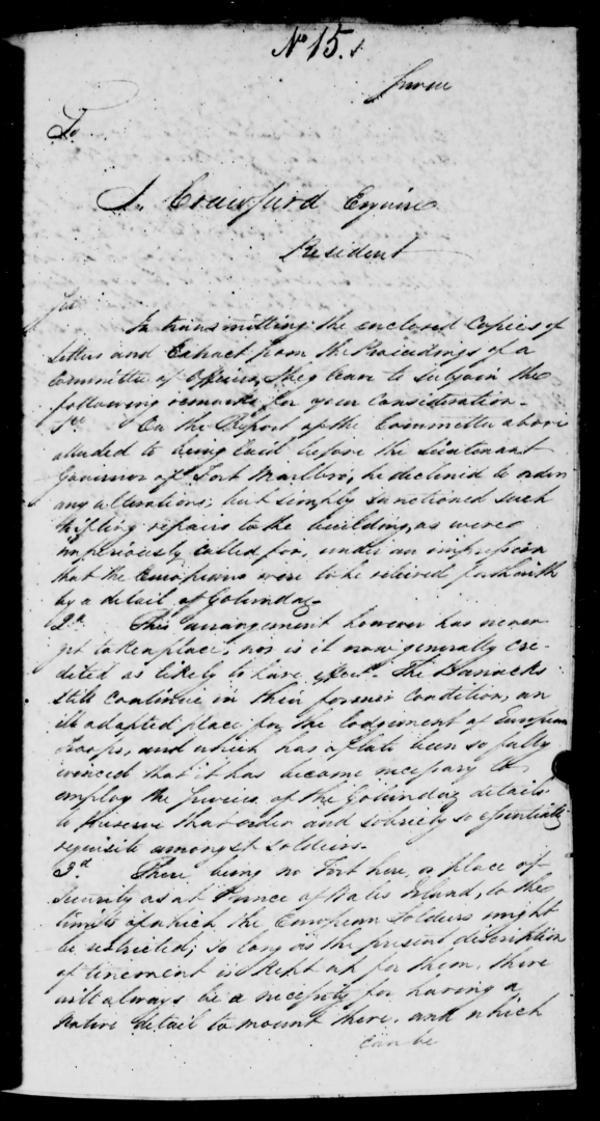 No 15.
To
J. Crawfurd Esquire
Resident
Sir
In transmitting the enclosed Copies of
Letters and Extract from the Proceedings of a
Committee of Officers, I beg leave to subjoin the
following remarks for your Consideration.
1st On the Report of the Committee above
alluded to being laid before the Lieutenant
Governor of Fort Marlbro, he declined to order
any alterations; but simply sanctioned such
trifling repairs to the building, as were
imperiously called for, under an impression
that the Europeans were to be relieved forthwith
by a detail of Golundaz.
2d This arrangement however has never
yet taken place, nor is it now generally cre-
dited as likely to have effect. The Barracks
still continue in their former Condition, an
ill adapted place for the lodgement of European
Troops, and which has of late been so fully
evinced that it has become necessary to
employ the services of the Golundaz details
to preserve that order and sobriety so essentially
requisite amongst soldiers.
3d There being no Fort here, or place of
Security as at Prince of Wales Island, to the
limits of which the European Soldiers might
be restricted; so long as the present description
of tenement is kept up for them, there
will always be a necessity for having a
Native detail to mount there, and which
can be